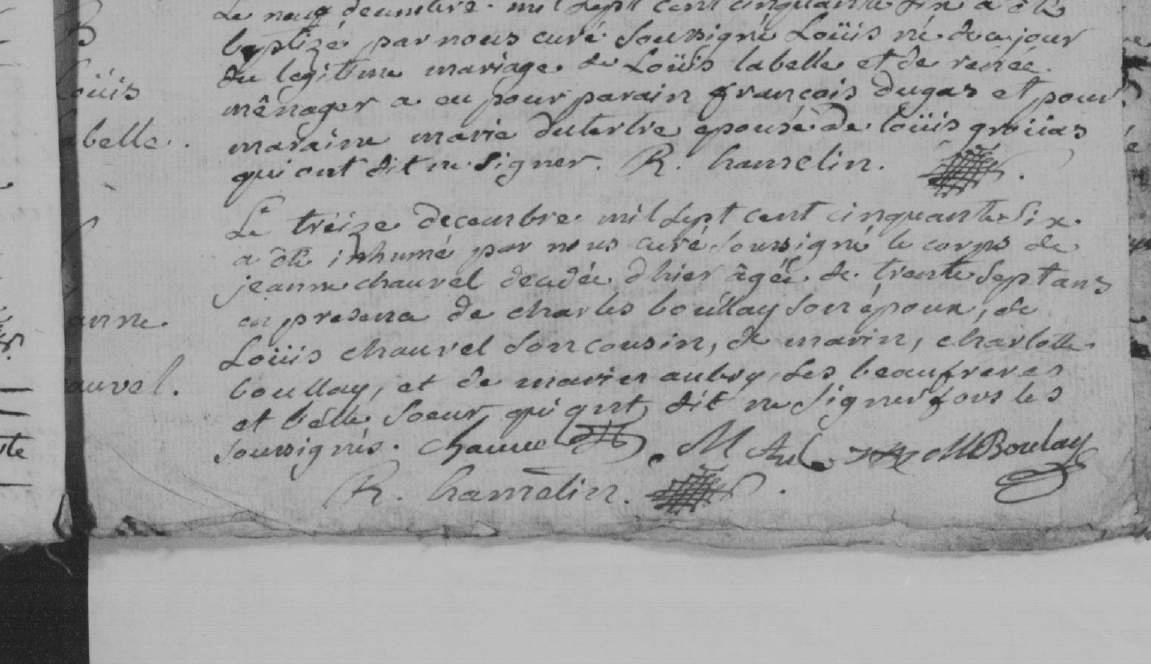 Le neuf decembre mil sept cent cinquante six a été
B
baptizé par nous curé soussigné Loüis né de ce jour
du legitime mariage de Loüis labelle et de renée
oüis
mênager a eu pour parain françois dugas et pour
abelle.
maraine marie dutertre epouse de loüis groüas
qui ont dit ne signer. R. hamelin.
Le treize decembre mil sept cent cinquante six
a été inhumé par nous curé soussigné le corps de
jeanne chauvel decedée d'hier âgée de trente sept ans
anne
en presence de charles boullay son époux, de
Loüis chauvel son cousin, de marin, charlotte
auvel.
boullay, et de marin aubry, ses beaufreres
et belle soeur, qui ont dit ne signer fors les
soussignés. chauvel M Aub M Boulay
R. hamelin.